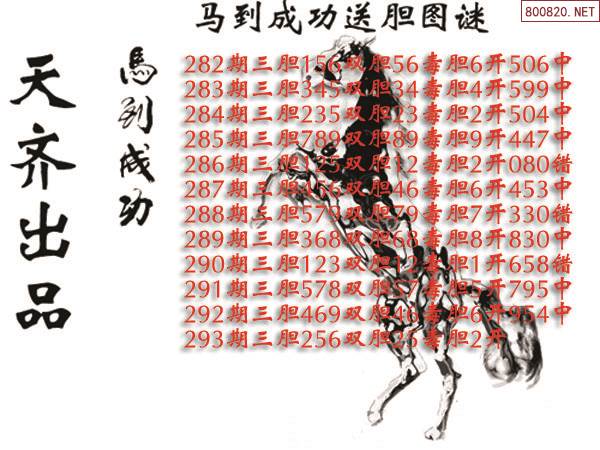 800820.NET
马到成功送胆图谜
天齐出品
馬到成功
282期三胆156双胆56毒胆6开506中
283期三胆345双胆34毒胆4开599中
284期三胆235双胆23毒胆2开504中
285期三胆789双胆89毒胆9开447中
286期三胆125双胆12毒胆2开080错
287期三胆456双胆46毒胆6开453中
288期三胆579双胆79毒胆7开330错
289期三胆368双胆68毒胆8开830中
290期三胆123双胆12毒胆1开658错
291期三胆578双胆57毒胆5开795中
292期三胆469双胆46毒胆6开954中
293期三胆256双胆25毒胆2开